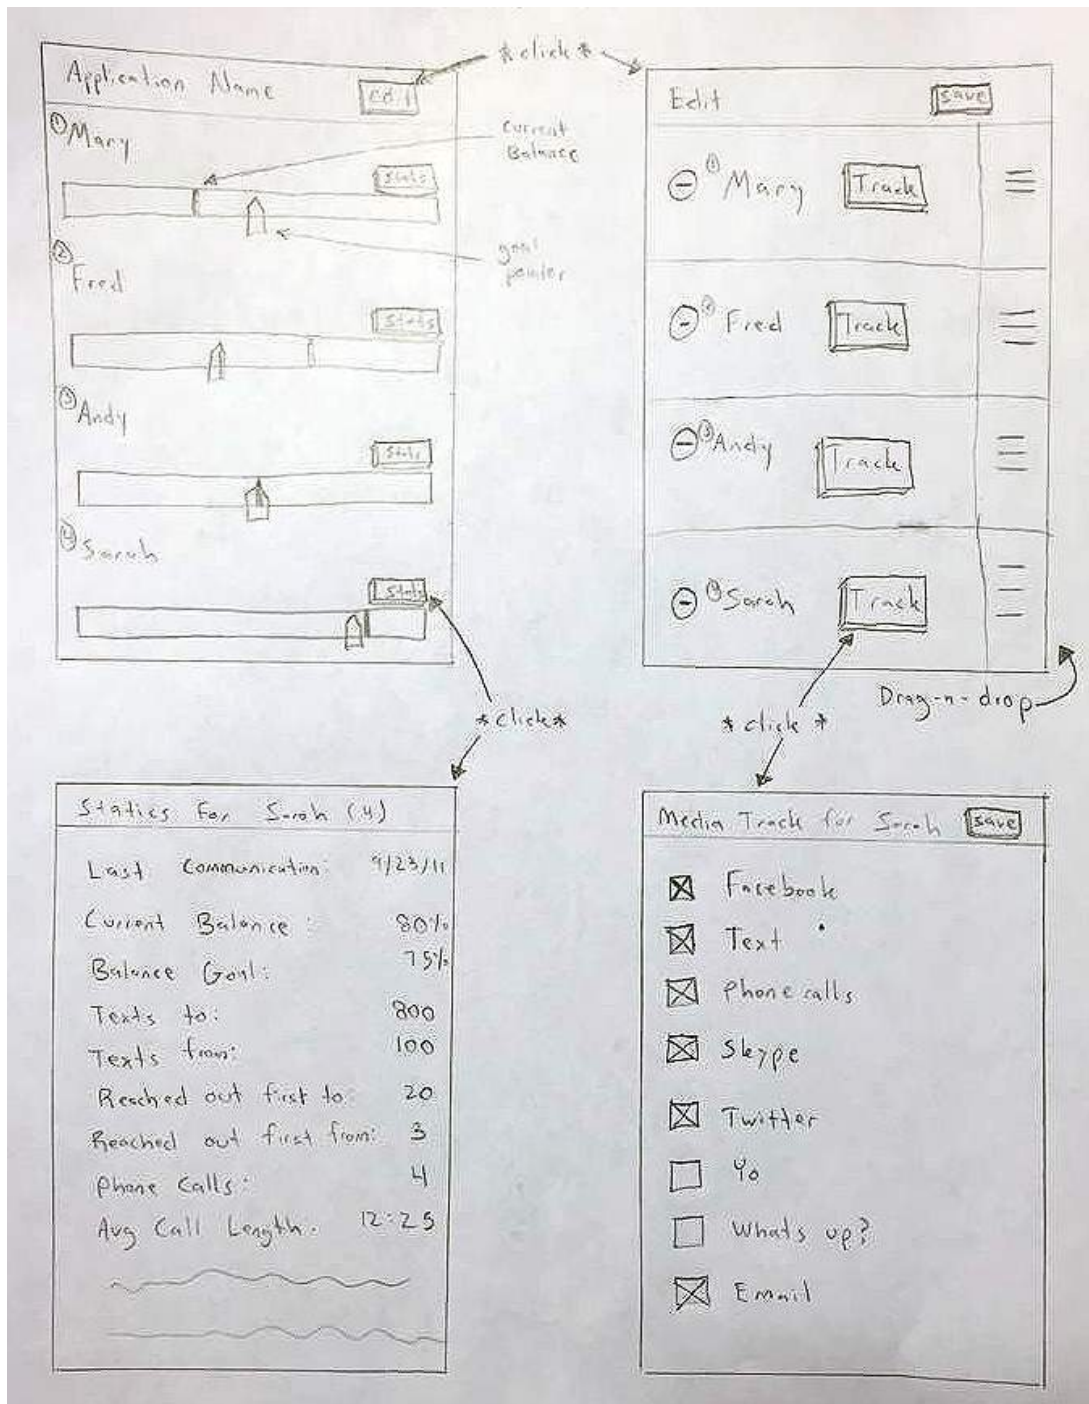 *click*
Application Name
edit
① Mary
Current
Balance
Stats
goal
pointer
② Fred
Stats
③ Andy
Stats
④ Sarah
Stats
*click*
Edit
save
① Mary Track
② Fred Track
③ Andy Track
Sarah Track
Drag-n-drop
*click*
Statics For Sarah (4)
Last Communication: 9/23/11
Current Balance: 80%
Balance Goal: 75%
Texts to: 800
Texts from: 100
Reached out first to: 20
Reached out first from: 3
Phone Calls: 4
Avg Call Length. 12:25
Media Track for Sarah save
Facebook
Text
Phone calls
Skype
Twitter
Yo
Whats up?
Email